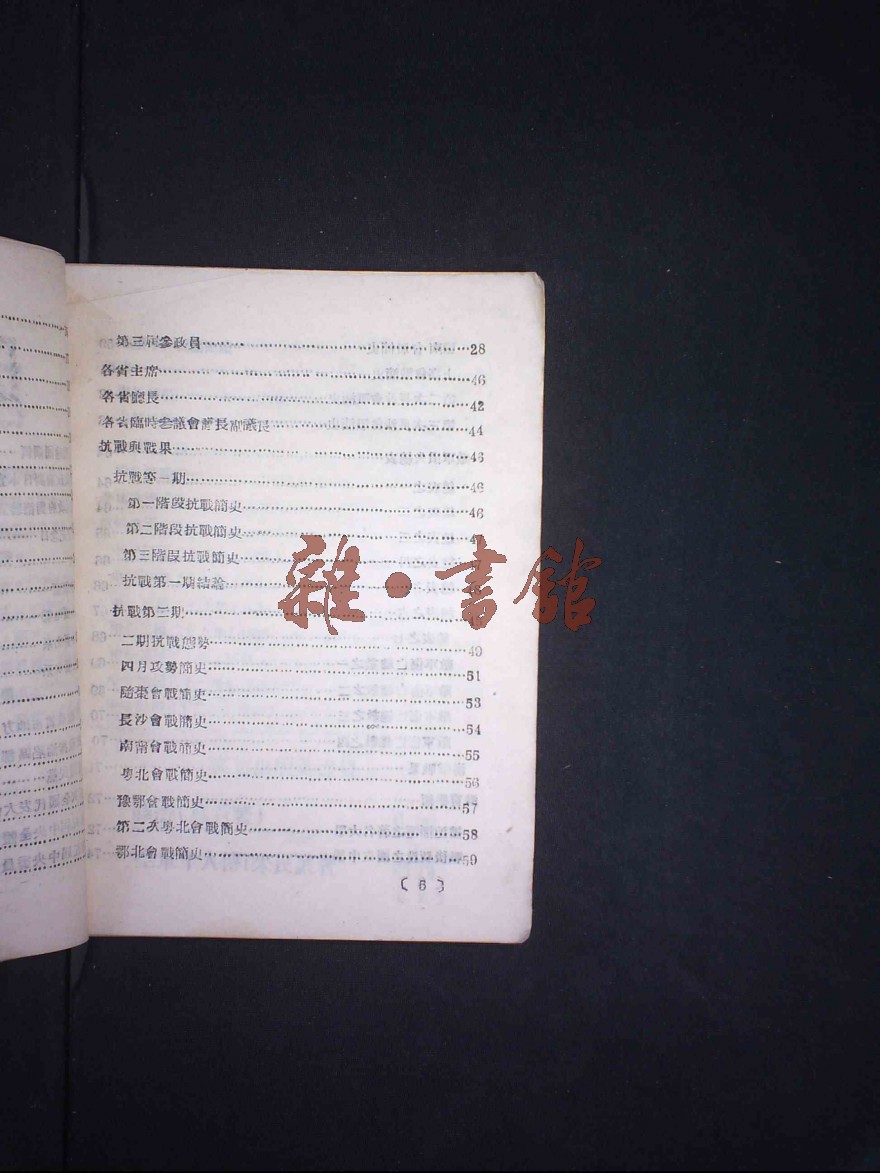 第三屆參政員……28
各省主席……46
各省廳長……42
各省臨時參議會議長副議長……44
抗戰與戰果……46
抗戰第一期……46
第一階段抗戰簡史……46
第二階段抗戰簡史……
第三階段抗戰簡史……
抗戰第一期結論……
抗戰第二期……
二期抗戰態勢……49
四月攻勢簡史……51
隨棗會戰簡史……53
長沙會戰簡史……54
南甯會戰簡史……55
粵北會戰簡史……56
豫鄂會戰簡史……57
第二次粵北會戰簡史……58
鄂北會戰簡史……59
〔6〕
雜·書館